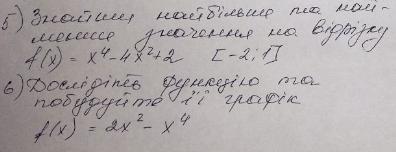 5) Знайти найбільше та най-
менше значення на відрізку
f(x) = x⁴-4x²+2 [-2; 1]
6) Дослідіть функцію та
побудуйте її графік
f(x) = 2x² - x⁴